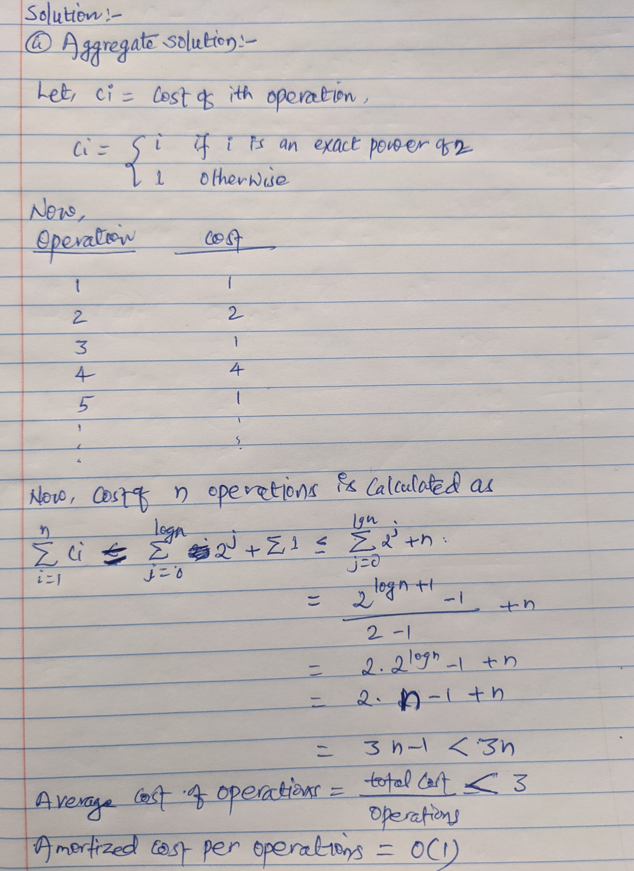 Solution:-
ⓐ Aggregate solution:-
Let, ci = cost of ith operation,
ci = { i if i is an exact power of 2
1 otherwise
Now,
Operation cost
1 1
2 2
3 1
4 4
5 1
Now, cost of n operations is calculated as
n∑i=1 ci ≤ logn∑j=0 2^j + Σ1 ≤ lgn∑j=0 2^j + n.
= (2^(logn+1) - 1)/(2-1) + n
= 2. 2^logn - 1 + n
= 2. n - 1 + n
= 3n-1 < 3n
Average cost of operations = total cost/operations < 3
Amortized cost per operations = O(1)